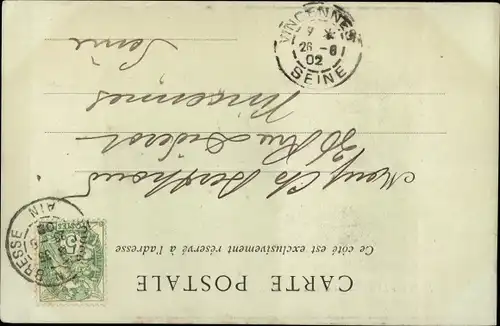 CARTE POSTALE
Ce côté est exclusivement réservé à l'adresse
Ch Berthoud
Rue Diderot
Vincennes
Seine
VINCENNES
26 -8
02
SEINE
BRESSE
AIN